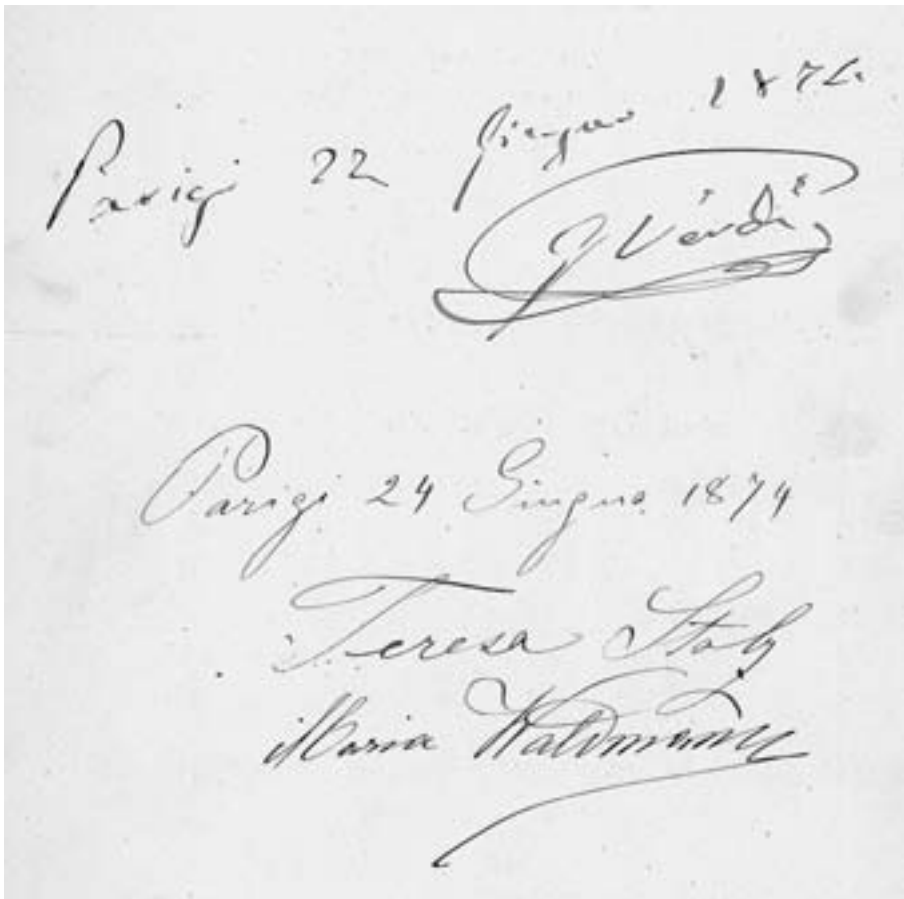 Parigi 22 Giugno 1874
G Verdi
Parigi 24 Giugno 1874
Teresa Stolz
Maria Waldmann